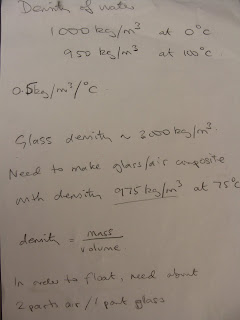 Density of water
1000 kg/m³ at 0°c
950 kg/m³ at 100°c
0.5kg/m³/°c
Glass density ~ 3000 kg/m³.
Need to make glass/air composite
with density 975 kg/m³ at 75°c
density = mass
volume.
In order to float, need about
2 parts air / 1 part glass